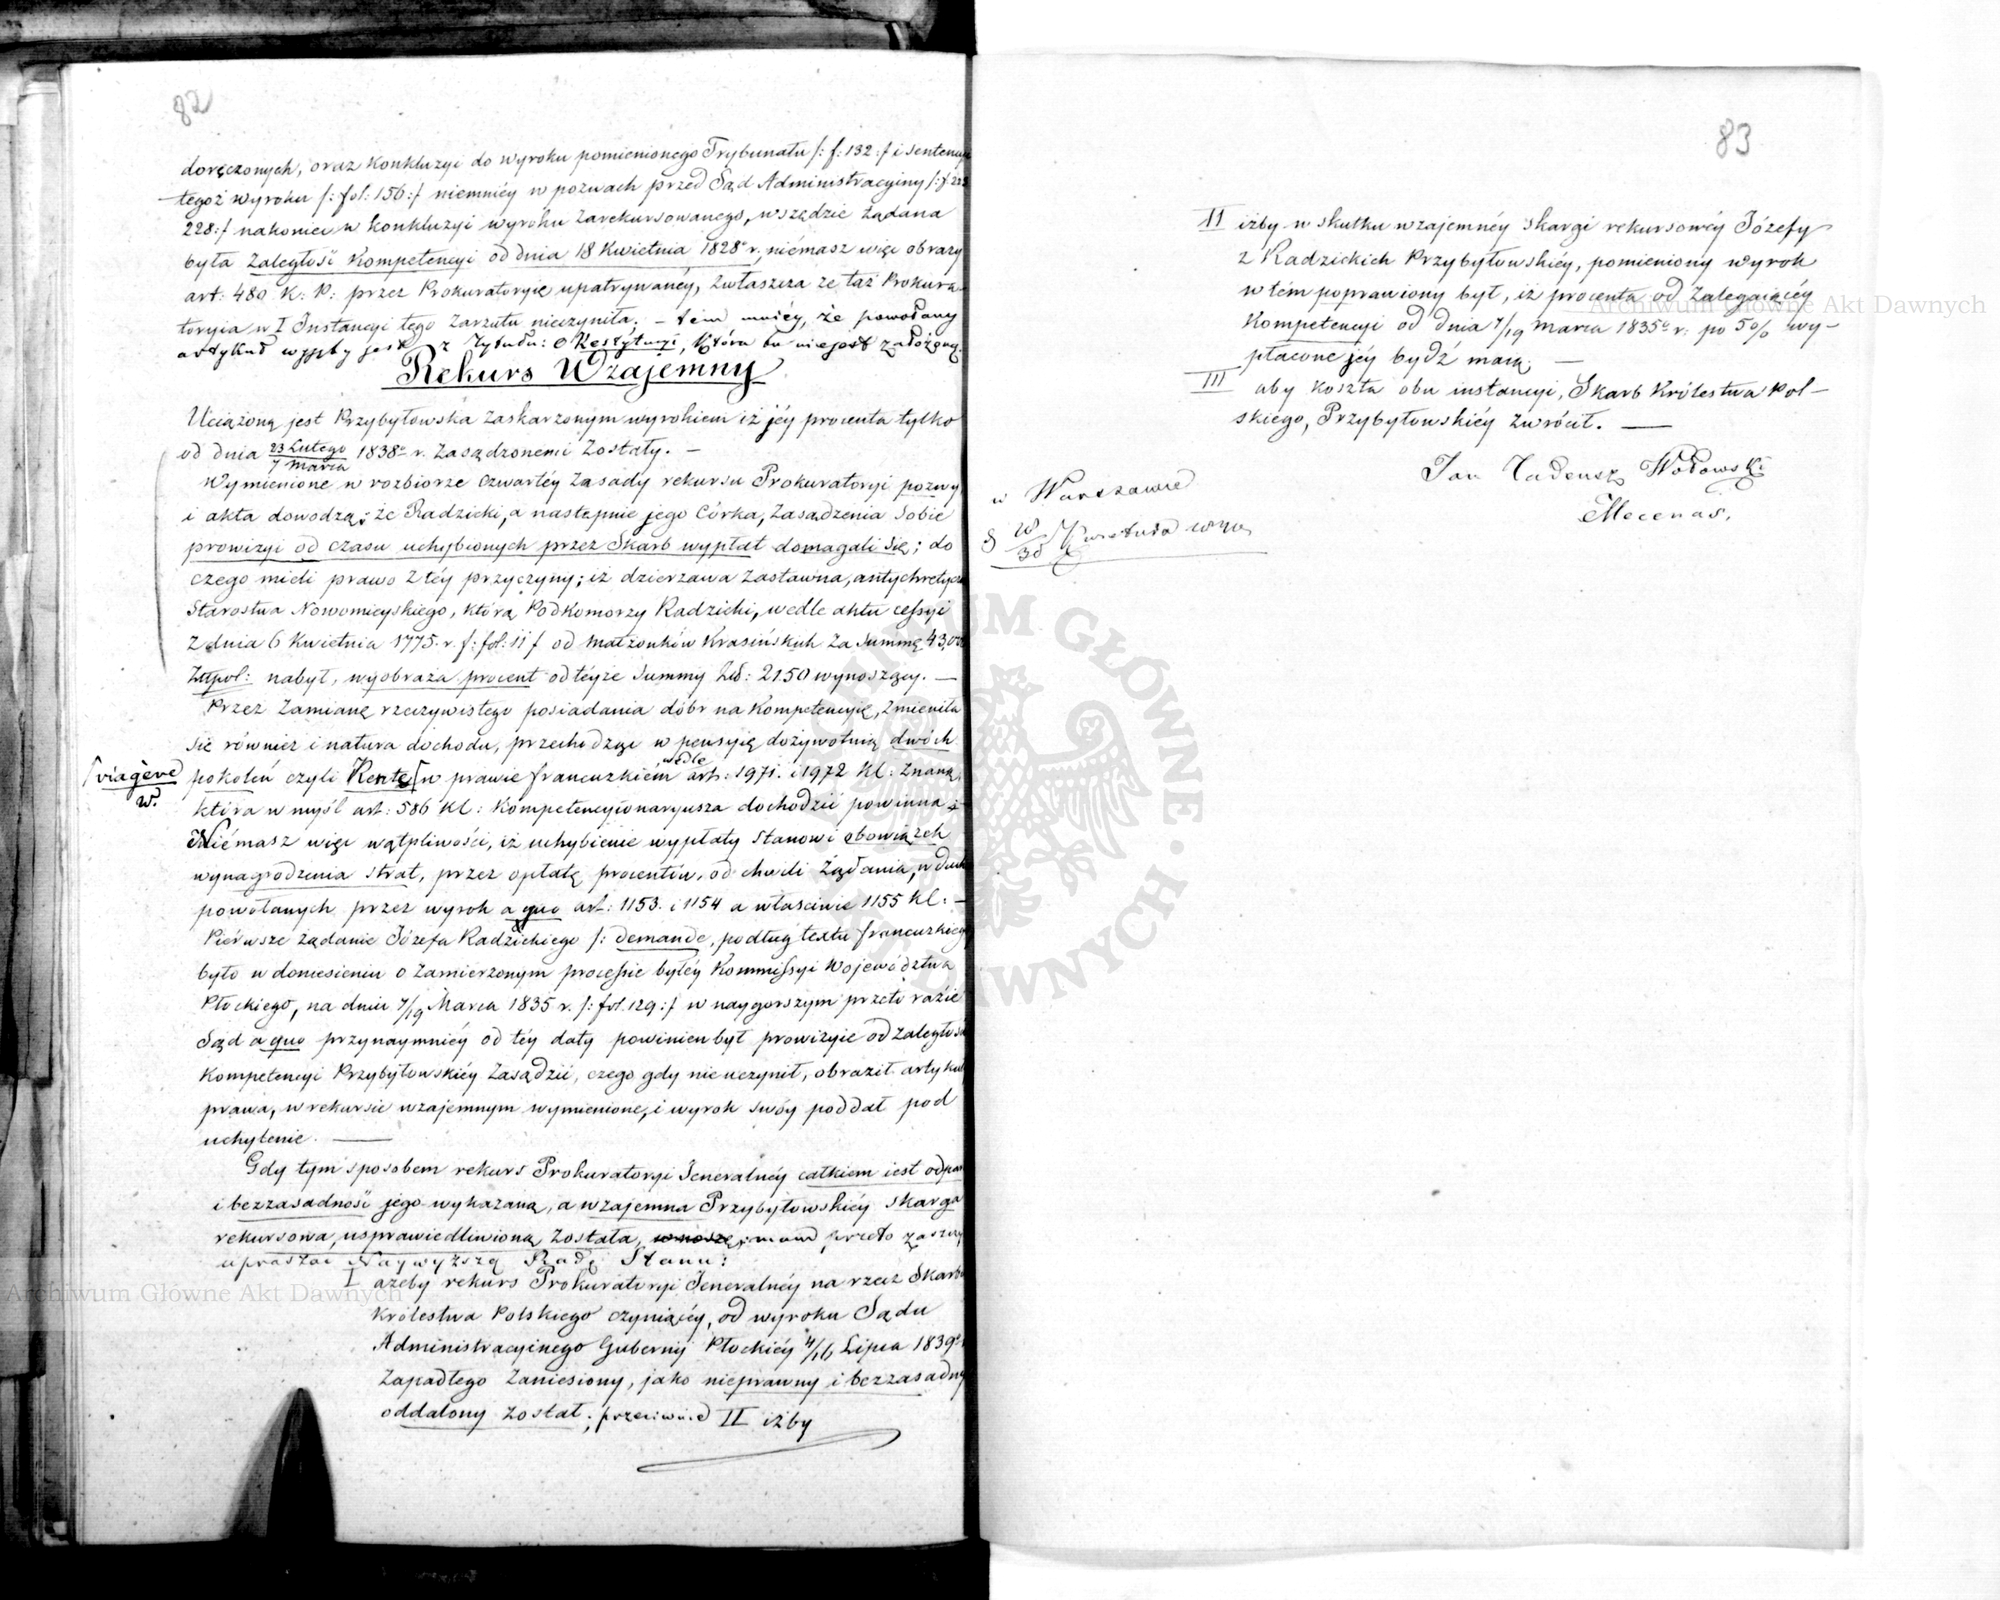 82
doręczonych, oraz Konkluzyi do wyroku pomienionego Trybunału /: f: 132 :/ i sentencyi
tegoż wyroku /: fol: 156 :/ niemniéy w pozwach przed Sąd Administracyiny /: f 223
228 :/ nakoniec w konkluzyi wyroku zarekursowanego, wszędzie żądana
była zaległość Kompetencyi od dnia 18 Kwietnia 1828º r, niémasz więc obrazy
art: 480 K: P: przez Prokuratoryię upatrywanéy, zwłaszcza że taż Prokura-
torya w I Instancyi tego zarzutu nieczyniła. – tém mniéy, że powołany
artykuł wyięty jest z Tytułu: o Restytucyi, która tu niejest założoną.
Rekurs Wzajemny
Uciążoną jest Przybyłowska zaskarżonym wyrokiem iż jéy procenta tylko
od dnia 23 Lutego / 7 Marca 1838º r. zasądzonemi zostały. –
Wymienione w rozbiorze czwartéy zasady rekursu Prokuratoryi pozwy
i akta dowodzą; że Radzicki, a następnie jego Córka, zasądzenia sobie
prowizyi od czasu uchybionych przez Skarb wypłat domagali się; do
czego mieli prawo z téy przyczyny; iż dzierżawa zastawna, antychretyczna
Starostwa Nowomieyskiego, którą Podkomorzy Radzicki, wedle aktu cessyi
z dnia 6 Kwietnia 1775. r. /: fol: 11 / od małżonków Krasińskich za Summę 43,000
Złtpol: nabył, wyobraża procent od téyże Summy Zł: 2150 wynoszący. –
Przez zamianę rzeczywistego posiadania dóbr na Kompetencyię, zmieniła
się również i natura dochodu, przechodząc w pensyię dożywotnią dwóch
viagère
w.
wedle
pokoleń czyli Rentę w prawie francuzkiém art: 1971. i 1972 Kl: znaną,
która w myśl art: 586 Kl: Kompetencyionaryusza dochodzić powinna.
Niémasz więc wątpliwości, iż uchybienie wypłaty stanowi obowiązek
wynagrodzenia strat, przez opłatę procentów, od chwili żądania, w duchu
powołanych przez wyrok a quo art: 1153. i 1154 a właściwie 1155 Kl: –
Piérwsze żądanie Józefa Radzickiego /: demande, podług textu francuzkiego
było w doniesieniu o zamierzonym processie byłéy Kommissyi Województwa
Płockiego, na dniu 7/19 Marca 1835 r. /: fol. 129 :/ w naygorszym przeto razie
Sąd a quo przynaymniéy od téy daty powinien był prowizyie od zaległości
Kompetencyi Przybyłowskiéy zasądzić, czego gdy nie uczynił, obraził artykuły
prawa, w rekursie wzajemnym wymienione, i wyrok swóy poddał pod
uchylenie.
Gdy tym sposobem rekurs Prokuratoryi Jeneralnéy całkiem iest odparty
i bezzasadność jego wykazaną, a wzajemna Przybyłowskiéy skarga
rekursowa, usprawiedliwioną została, wnoszę, mam przeto zaszczyt
upraszać Naywyższą Radę Stanu:
I ażeby rekurs Prokuratoryi Jeneralnéy na rzecz Skarbu
Królestwa Polskiego czyniącéy, od wyroku Sądu
Administracyinego Gubernij Płockiéy 4/16 Lipca 1839º
zapadłego zaniesiony, jako nieprawny i bezzasadny
oddalony został; przeciwnie II iżby
83
II iżby w skutku wzajemnéy skargi rekursowéy Józefy
z Radzickich Przybyłowskiéy, pomieniony wyrok
w tém poprawiony był, iż procenta od zalegaiącéy
Kompetencyi od dnia 7/19 Marca 1835º r. po 5 0/0 wy-
płacone jéy bydź maią. –
III aby koszta obu instancyi, Skarb Królestwa Pol-
skiego, Przybyłowskiéy zwrócił. –
Jan Tadeusz Wołowski
Mecenas.
w Warszawie
/30 Kwietnia
Archiwum Główne Akt Dawnych
Archiwum Główne Akt Dawnych
ARCHIWUM GŁÓWNE AKT DAWNYCH